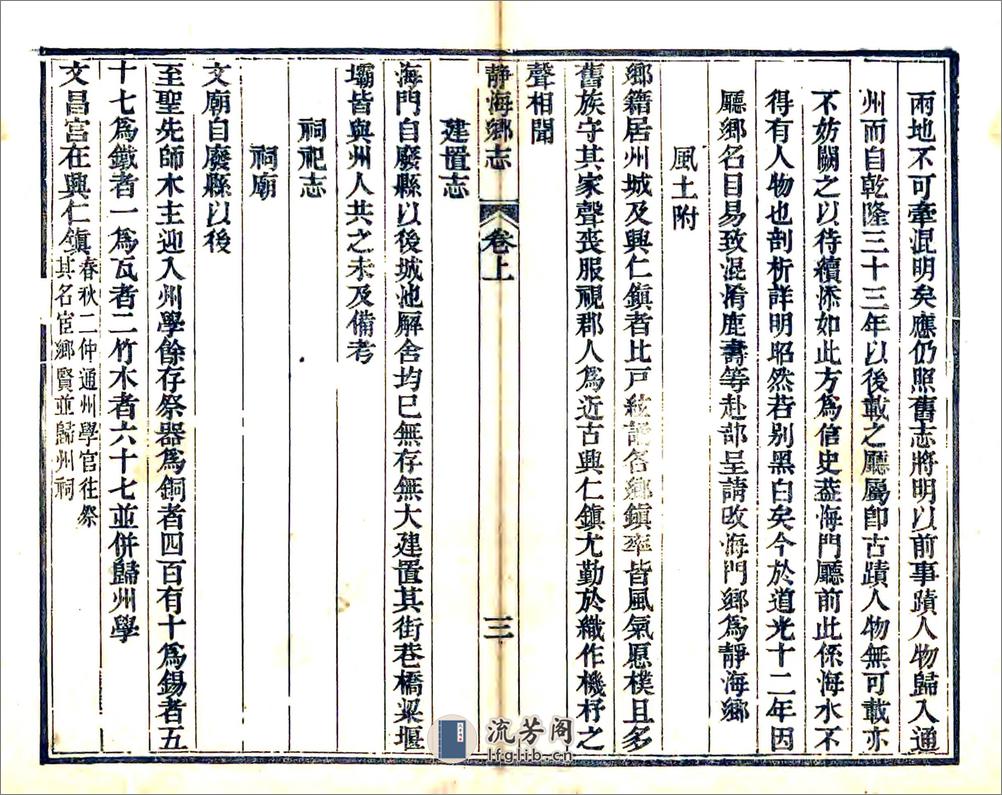 兩地不可牽混明矣應仍照舊志將明以前事蹟人物歸入通
州而自乾隆三十三年以後載之廳屬卽古蹟人物無可載亦
不妨闕之以待續添如此方為信史蓋海門廳前此係海水不
得有人物也剖析詳明昭然若别黑白矣今於道光十二年因
廳鄉名目易致混淆鹿壽等赴部呈請改海門鄉為靜海鄉
風土附
鄉籍居州城及興仁鎮者比戸絃誦各鄉鎮率皆風氣愿樸且多
舊族守其家聲喪服視郡人為近古興仁鎮尤勤於織作機杼之
聲相聞
靜海鄉志
卷上
三
建置志
海門自廢縣以後城池廨舍均已無存無大建置其街巷橋梁堰
壩皆與州人共之未及備考
祠祀志
祠廟
文廟自廢縣以後
至聖先師木主迎入州學餘存祭器為銅者四百有十為錫者五
十七為鐵者一為瓦者二竹木者六十七並併歸州學
文昌宮在興仁鎮春秋二仲通州學官往祭
其名宦鄉賢並歸州祠
流芳阁
lfglib.cn